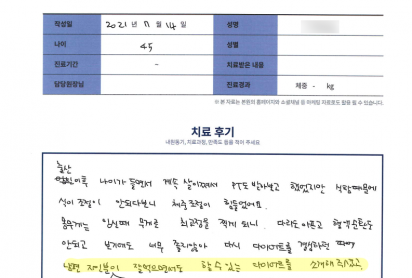 작성일 2021 년 11 월 14 일 성명
나이 45 성별
진료기간 - 치료받은 내용
담당원장님 진료경과 체중 - kg
※ 본 자료는 본원의 홈페이지와 소셜채널 등 마케팅 자료로도 활용 될 수 있습니다.
치료 후기
내원동기, 치료과정, 만족도 등을 적어 주세요
출산
이후 나이가 들면서 계속 살이쪄서 PT도 받아보고 했었지만 식탐때문에
식이 조절이 안되다보니 체중조절이 힘들었어요.
몸무게는 임신때 무게로 최고점을 찍게 되니 다리도 아프고 혈액순환도
안되고 보기에도 너무 좋지않아 다시 다이어트를 결심하던 때에
남편 지인분이 잘먹으면서도 할 수 있는 다이어트를 소개해 주시겠고